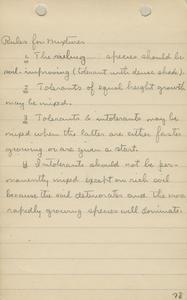 Rules for Mixtures
1 The ruling species should be
soil-improving (tolerant with dense shade).
2 Tolerants of equal height growth
may be mixed.
3 Tolerants & intolerants may be
mixed when the latter are either faster
growing or are given a start.
4 Intolerants should not be per-
manently mixed except on rich soil
because the soil deteriorates and the more
rapidly growing species will dominate.
78